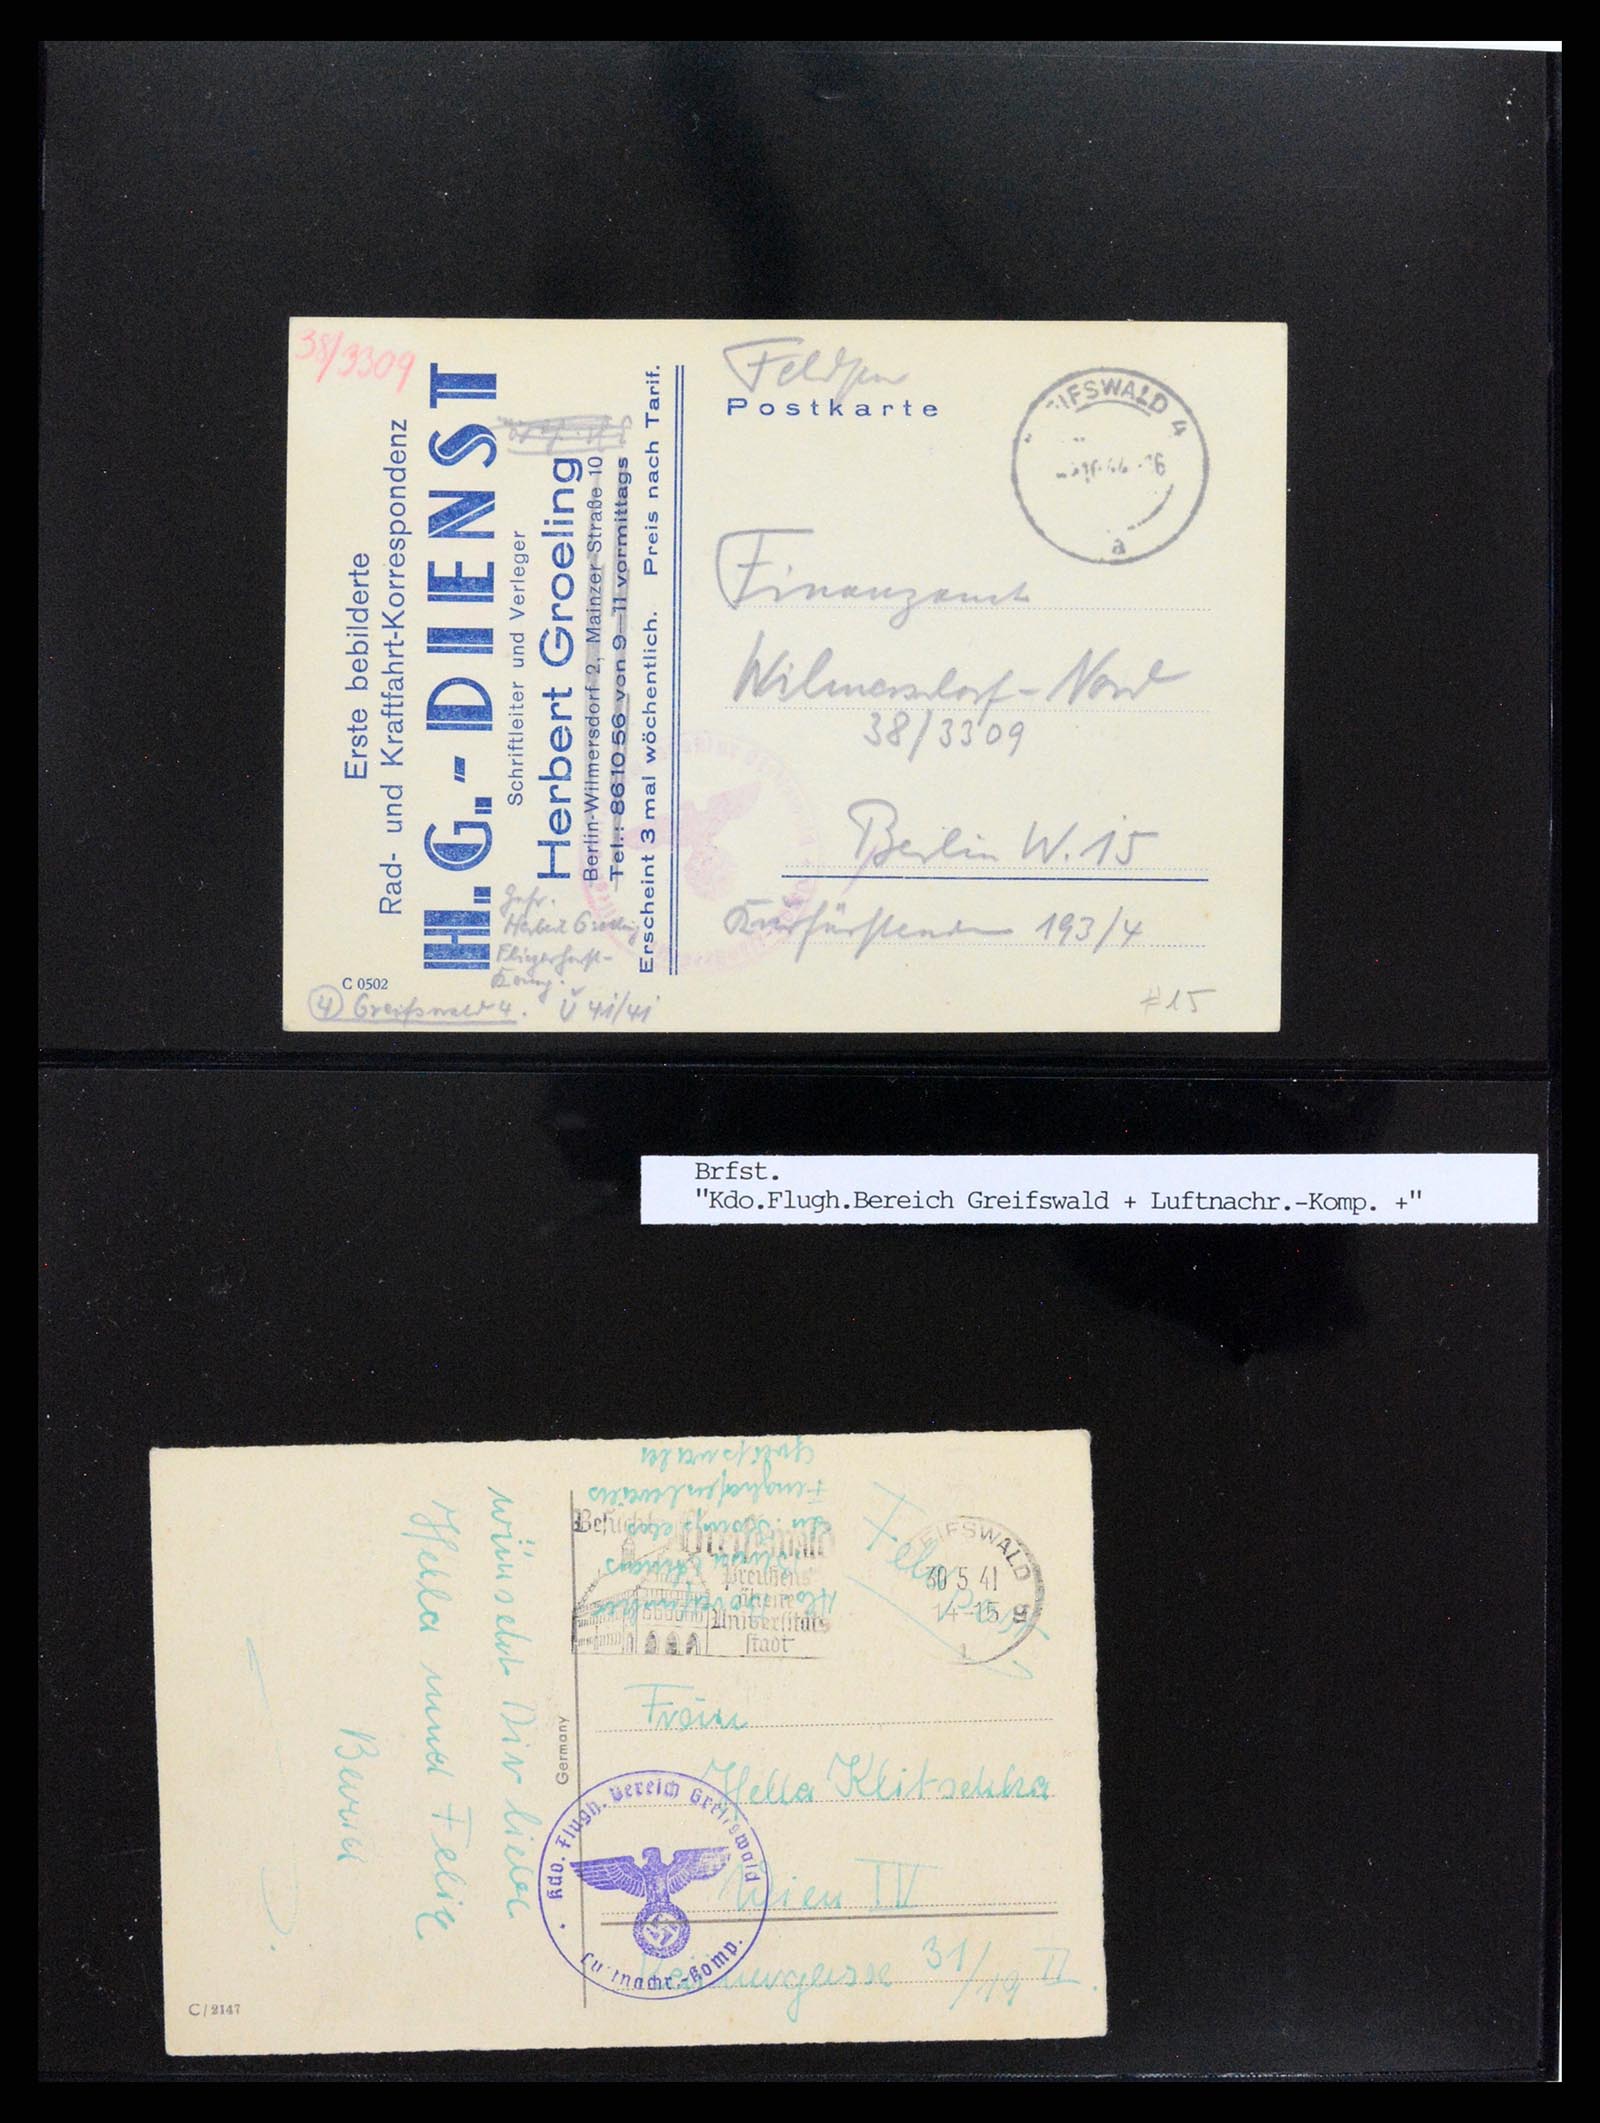 38/3309
Erste bebilderte
Rad- und Kraftfahrt-Korrespondenz
H.G.-DIENST
Schriftleiter und Verleger
Herbert Groeling
Berlin-Wilmersdorf 2, Mainzer Straße 10
Tel.: 86 10 56 von 9–11 vormittags
Erscheint 3 mal wöchentlich. Preis nach Tarif.
Gefr.
Herbert Groeling
Fliegerhorst-
Komp.
C 0502
(4) Greifswald 4. Ü 41/41
Postkarte
EIFSWALD 4
a
Finanzamt
Wilmersdorf-Nord
38/3309
Berlin W. 15
193/4
#15
Brfst.
"Kdo.Flugh.Bereich Greifswald + Luftnachr.-Komp. +"
Greifswald
Besucht
Greifswald
Preußens
Universitäts
stadt
EIFSWALD 5
30 5 41
14-15
wünscht Dir liebe
Hella und Felix
Germany
Hella Klitschka
Wien IV
31/19 II.
Kdo. Flugh. Bereich Greifswald
Luftnachr.-Komp.
C/2147